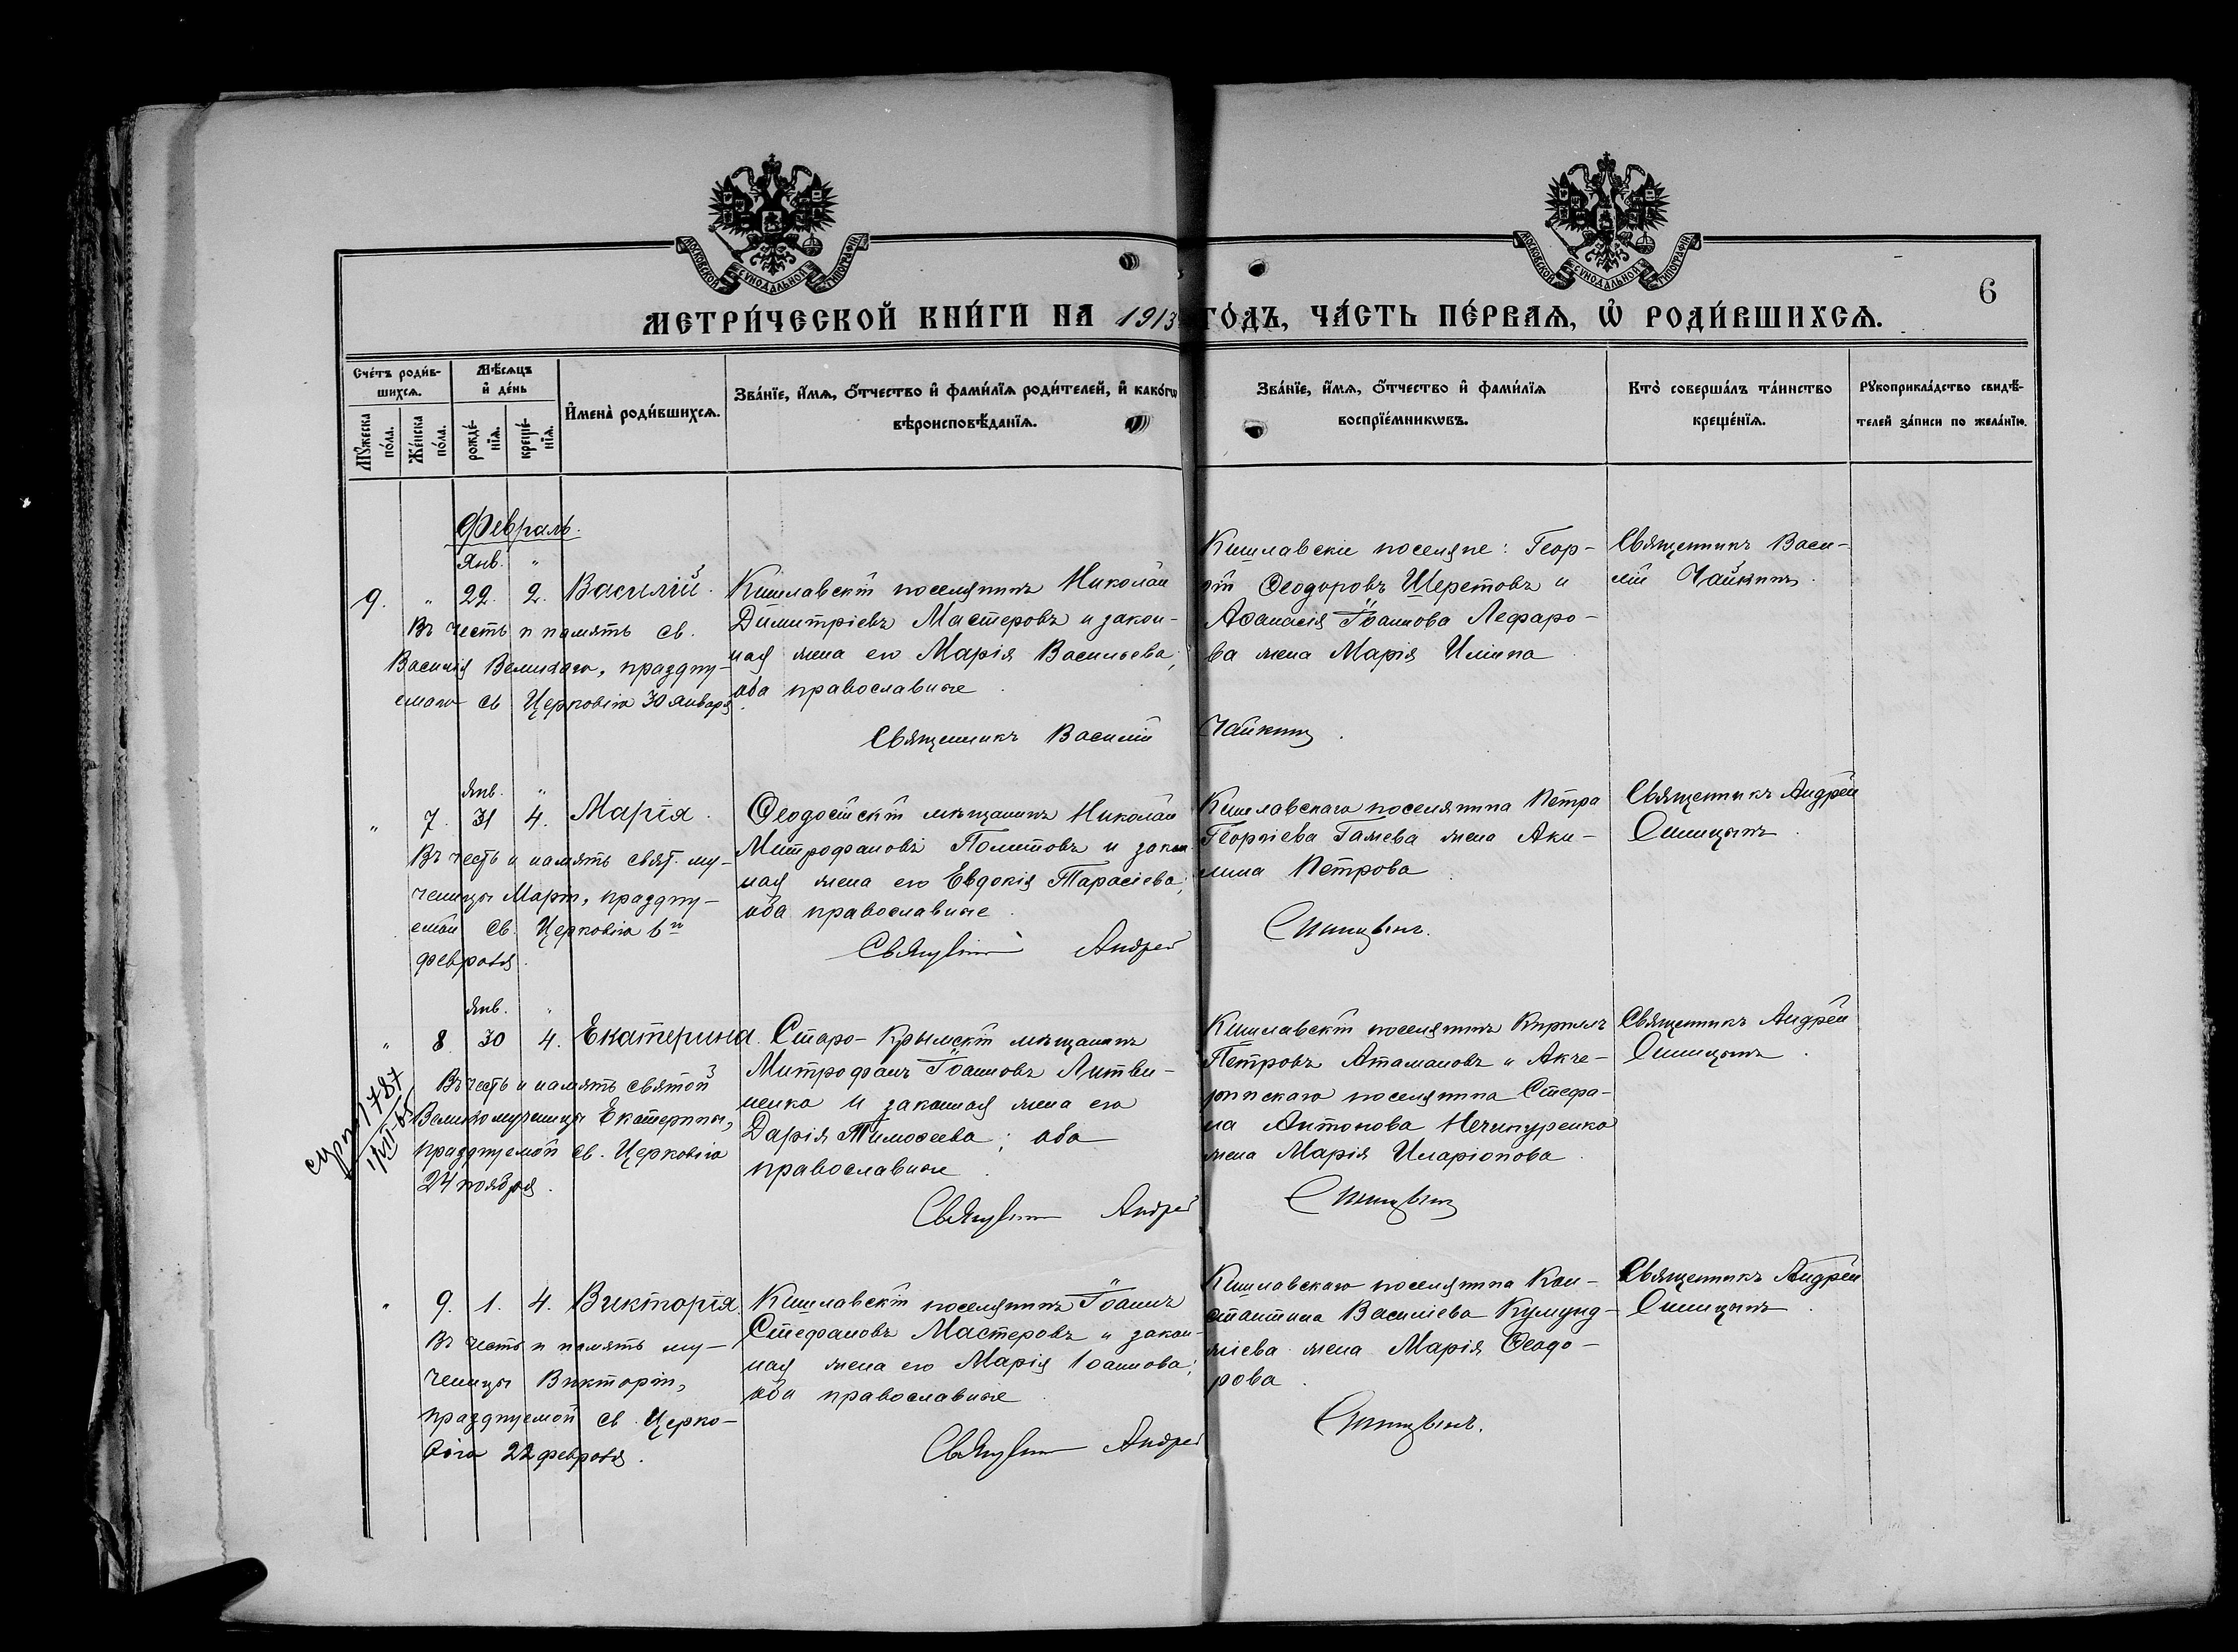 МОСКОВСКОЙ СѴНОДАЛЬНОЙ ТИПОГРАФІИ
МОСКОВСКОЙ СѴНОДАЛЬНОЙ ТИПОГРАФІИ
6
МЕТРИ́ЧЕСКОЙ КНИ́ГИ НА 1913 ГО́ДЪ, ЧА́СТЬ ПЕ́РВАѦ, Ѡ҆ РОДИ́ВШИХСѦ.
Сче́тъ роди́в-
шихсѧ.
Мꙋ́жеска по́ла.
Же́нска по́ла.
Мѣ́сѧцъ
и҆ де́нь
рожде́-
нїѧ.
креще́-
нїѧ.
И҆мена̀ роди́вшихсѧ.
Зва́нїе, и҆́мѧ, ѻ҆́тчество и҆ фами́лїѧ роди́телей, и҆ како́гѡ
вѣроисповѣ́данїѧ.
Зва́нїе, и҆́мѧ, ѻ҆́тчество и҆ фами́лїѧ
воспрїе́мникѡвъ.
Кто̀ соверша́лъ та́инство
креще́нїѧ.
Рꙋкоприкла́дство свидѣ́-
телей за́писи по жела́нїю.
Февраль.
Янв. "
9. " 22. 2. Василій.
Въ честь и память св.
Василія Великаго, праздну-
емаго св. Церковію 30 января.
Кишлавскій поселянинъ Николай
Димитріевъ Мастеровъ и закон-
ная жена его Марія Васильева;
оба православные.
Кишлавскіе поселяне: Геор-
гій Ѳеодоровъ Шеретовъ и
Аѳанасія Іоаннова Лефаро-
ва жена Марія Ильина.
Священникъ Васи-
лій Чайкинъ.
Священникъ Василій Чайкинъ.
Янв. "
" 7. 31 4. Марія.
Въ честь и память свят. му-
ченицы Маріи, праздну-
емой св. Церковію 6го
февраля.
Ѳеодосійскій мѣщанинъ Николай
Митрофановъ Политовъ и закон-
ная жена его Евдокія Тарасіева;
оба православные.
Кишлавскаго поселянина Петра
Георгіева Галиева жена Аки-
лина Петрова.
Священникъ Андрей
Синицынъ.
Священникъ Андрей Синицынъ.
Янв. "
" 8. 30 4. Екатерина.
Въ честь и память святой
Великомученицы Екатерины,
празднуемой св. Церковію
24 ноября.
1787
Старо-Крымскій мѣщанинъ
Митрофанъ Іоанновъ Литви-
ненко и законная жена его
Дарія Тимоѳеева; оба
православные.
Кишлавскій поселянинъ Кириллъ
Петровъ Атамановъ и Акче-
ринскаго поселянина Стефа-
на Антонова Нечипуренко
жена Марія Иларіонова.
Священникъ Андрей
Синицынъ.
Священникъ Андрей Синицынъ
" 9. 1. 4. Викторія.
Въ честь и память му-
ченицы Викторіи,
празднуемой св. Церко-
вію 22 февраля.
Кишлавскій поселянинъ Іоаннъ
Стефановъ Мастеровъ и закон-
ная жена его Марія Іоаннова;
оба православные.
Кишлавскаго поселянина Кон-
стантина Василіева Кумунд-
жіева жена Марія Ѳеодо-
рова.
Священникъ Андрей
Синицынъ.
Священникъ Андрей Синицынъ.